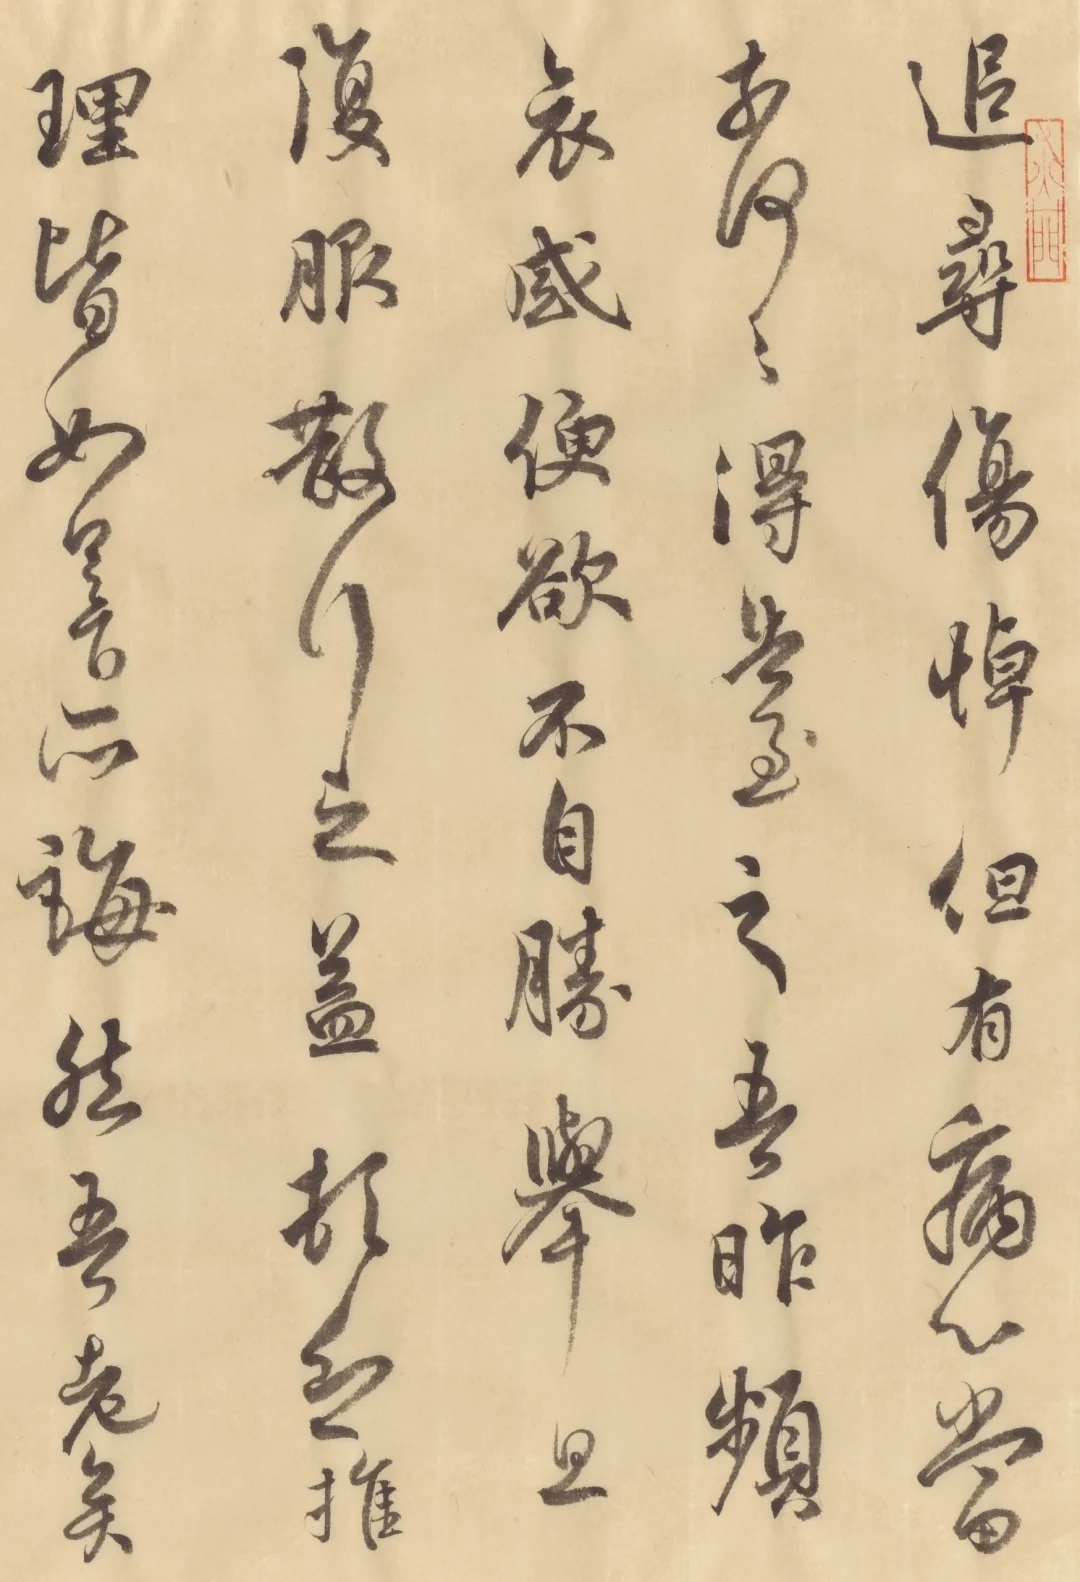 追尋傷悼但有痛心當
奈何々得告慰之吾昨頻
哀感便欲不自勝舉旦
復服散行之益頓乏推
理皆如足下所誨然吾老矣